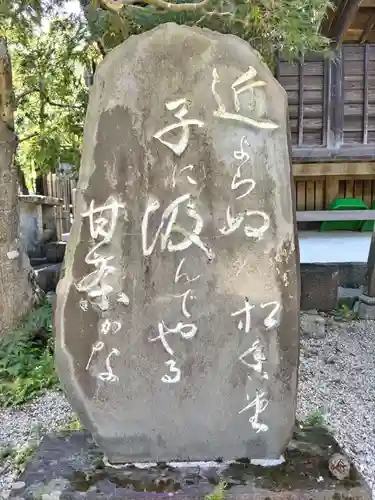 近よらぬ 松
子に汲んでやる
甘茶かな